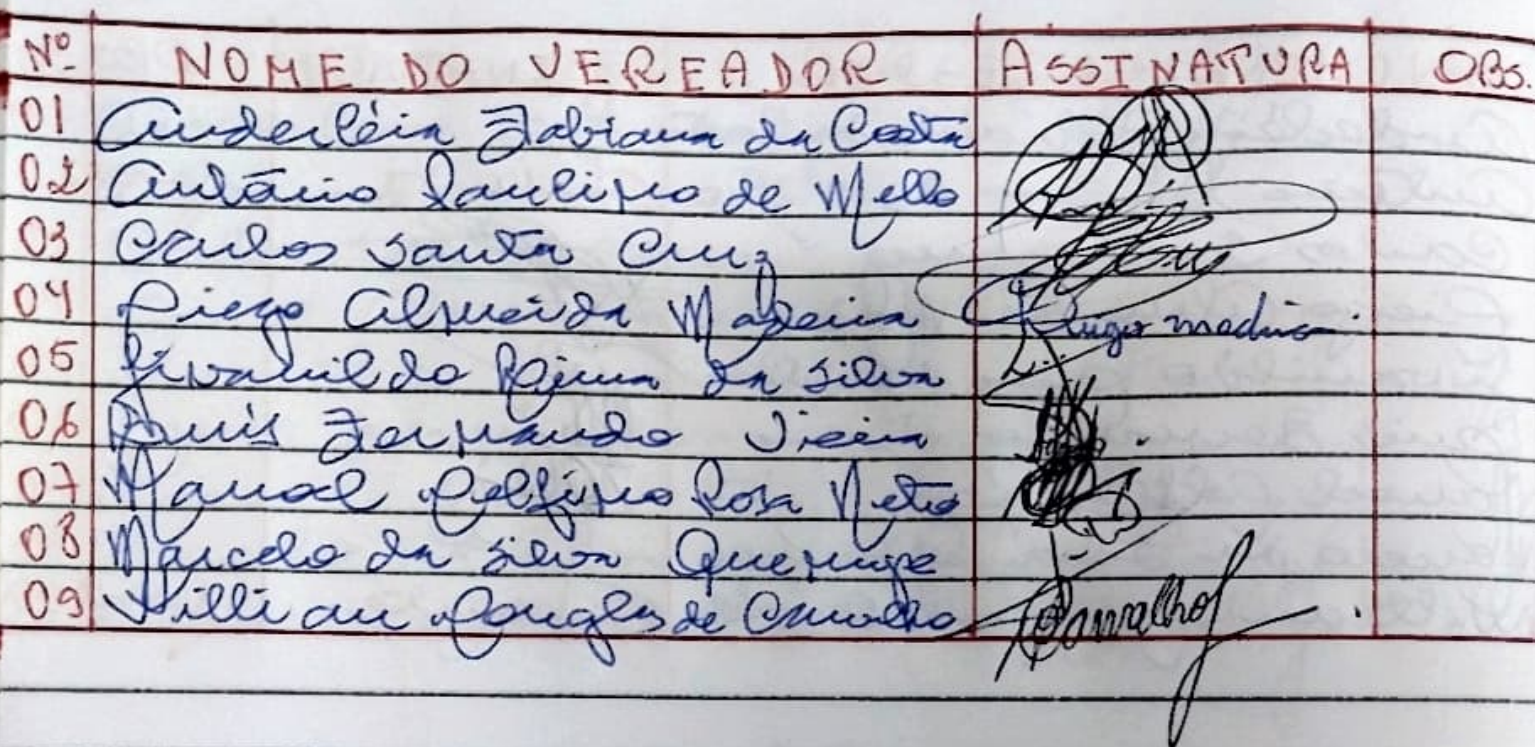 Nº NOME DO VEREADOR ASSINATURA OBS.
01 Anderléia Fabiana da Costa
02 Antônio Paulino de Mello
03 Carlos Santa Cruz
04 Diego Almeida Madeira
05 da Silva
06 Luis Fernando Vieira
07 Manoel Delfino Rosa Neto
08 Marcelo da Silva
09 Willian Douglas de Carvalho Carvalho